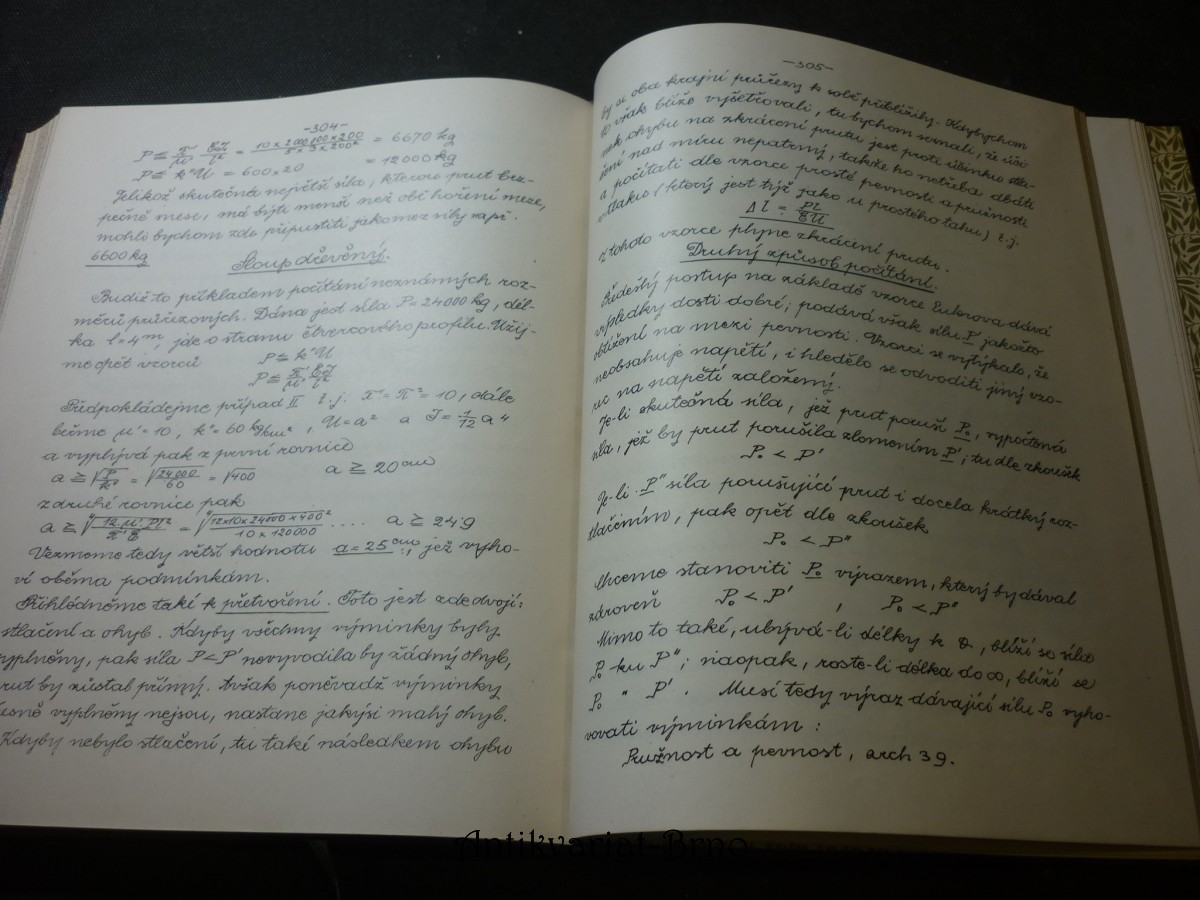 -304-
P ≦ π/μ' EJ/l² = 10×200000×200 / = 6670 kg
P ≦ k°U = 600×20 = 12000 kg
Jelikož skutečná největší síla, kterou prut bez-
pečně nese, má býti menší než obě hoření meze,
mohli bychom zde připustiti jakomez síly na př.
6600 kg
Sloup dřevěný.
Budiž to příkladem počítání neznámých roz-
měrů průřezových. Dána jest síla P = 24000 kg, dél-
ka l = 4 m, jde o stranu čtvercového profilu. Užij-
me opět vzorců
P ≦ k°U
P ≦ π'/μ' EJ/l²
Předpokládejme případ II t.j. π' = π² = 10, dále
beřme μ' = 10, k° = 60 kg/cm², U = a² a J = 1/12 a⁴
a vyplývá pak z první rovnice
a ≧ √P/k° = √24000/60 = √400 a ≧ 20 cm
z druhé rovnice pak
a ≧ ⁴√12 μ' Pl²/π' E = ⁴√12×10×24000×400²/10×120000 .... a ≧ 24.9
Vezmeme tedy větší hodnotu a = 25 cm, jež vyho-
ví oběma podmínkám.
Přihlédněme také k přetvoření. Toto jest zde dvojí:
stlačení a ohyb. Kdyby všechny výminky byly
vyplněny, pak síla P < P' nevyvodila by žádný ohyb,
prut by zůstal přímý. Avšak poněvadž výminky
přesně vyplněny nejsou, nastane jakýsi malý ohyb.
Kdyby nebylo stlačení, tu také následkem ohybu
-305-
by se oba krajní průřezy k sobě přiblížily. Kdybychom
to však blíže vyšetřovali, tu bychom seznali, že úči-
nek ohybu na zkrácení prutu jest proti účinku stla-
čení nad míru nepatrný, takže ho netřeba dbáti
a počítati dle vzorce prosté pevnosti a pružnosti
v tlaku (který jest týž jako u prostého tahu) t.j.
Δl = Pl/EU
Z tohoto vzorce plyne zkrácení prutu.
Druhý způsob počítání.
Předešlý postup na základě vzorce Eulrova dává
výsledky dosti dobré; podává však sílu P jakožto
obtížení na mezi pevnosti. Vzorci se vytýkalo, že
neobsahuje napětí, i hledělo se odvoditi jiný vzo-
rec na napětí založený.
Je-li skutečná síla, jež prut poruší P₀, vypočtená
síla, jež by prut porušila zlomením P'; tu dle zkoušek
P₀ < P'
Je-li P" síla porušující prut i docela krátký roz-
tlačením, pak opět dle zkoušek
P₀ < P"
Chceme stanoviti P₀ výrazem, který by dával
zároveň P₀ < P' , P₀ < P"
Mimo to také, ubývá-li délky k 0, blíží se síla
P₀ ku P"; naopak, roste-li délka do ∞, blíží se
P₀ " P'. Musí tedy výraz dávající sílu P₀ vyho-
vovati výminkám:
Pružnost a pevnost, arch 39.
Antikvariat-Brno